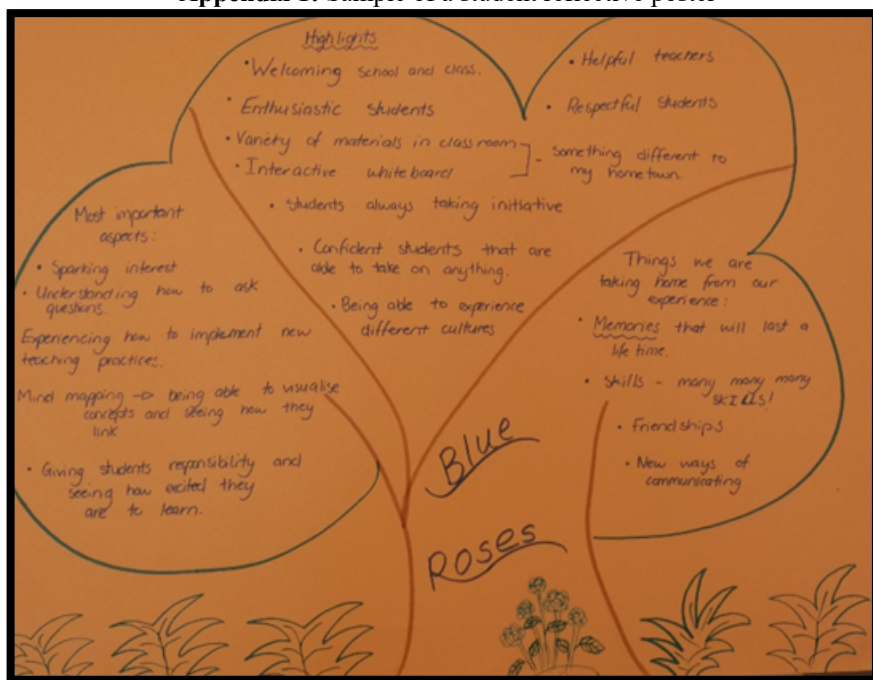 Appendix 1: Sample of a student reflective poster
Highlights
• Welcoming school and class.
• Enthusiastic students
• Variety of materials in classroom
• Interactive whiteboard
- something different to
my hometown.
• Helpful teachers
• Respectful students
• students always taking initiative
• Confident students that are
able to take on anything.
• Being able to experience
different cultures
Most important
aspects:
• Sparking interest
• Understanding how to ask
questions.
Experiencing how to implement new
teaching practices.
Mind mapping -> being able to visualise
concepts and seeing how they
link
• Giving students responsibility and
seeing how excited they
are to learn.
Things we are
taking home from our
experience:
• Memories that will last a
life time.
• Skills - many many many
SKILLS!
• Friendships
• New ways of
communicating
Blue
Roses